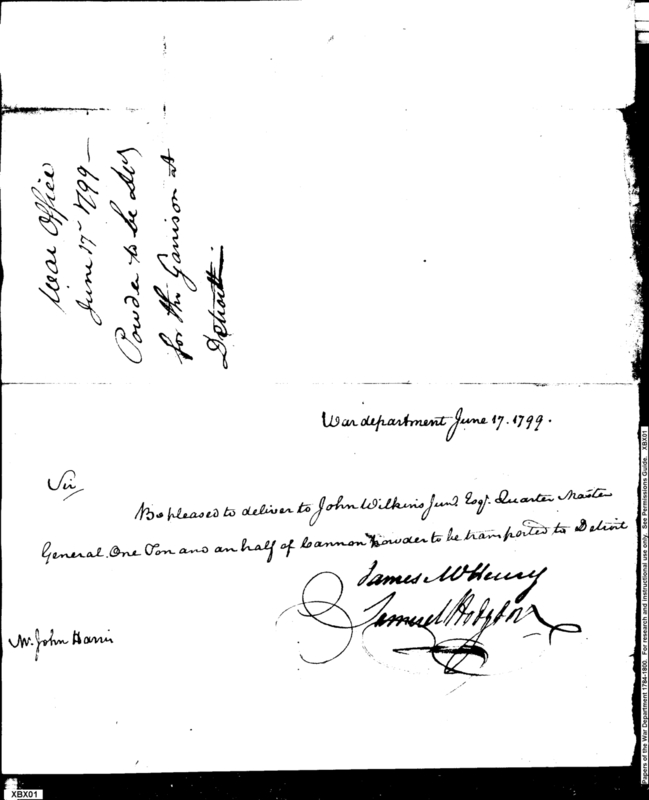 War Office
June 17th 1799 —
Powder to be Del'd
for the Garrison at
Detroit
War department June 17. 1799.
Sir
Be pleased to deliver to John Wilkins Jun.r Esq.r Quarter Master
General. One Ton and an half of Cannon Powder to be transported to Detroit
James McHenry
Samuel Hodgdon
Mr. John Harris
XBX01
Papers of the War Department 1784-1800. For research and instructional use only. See Permissions Guide. XBX01